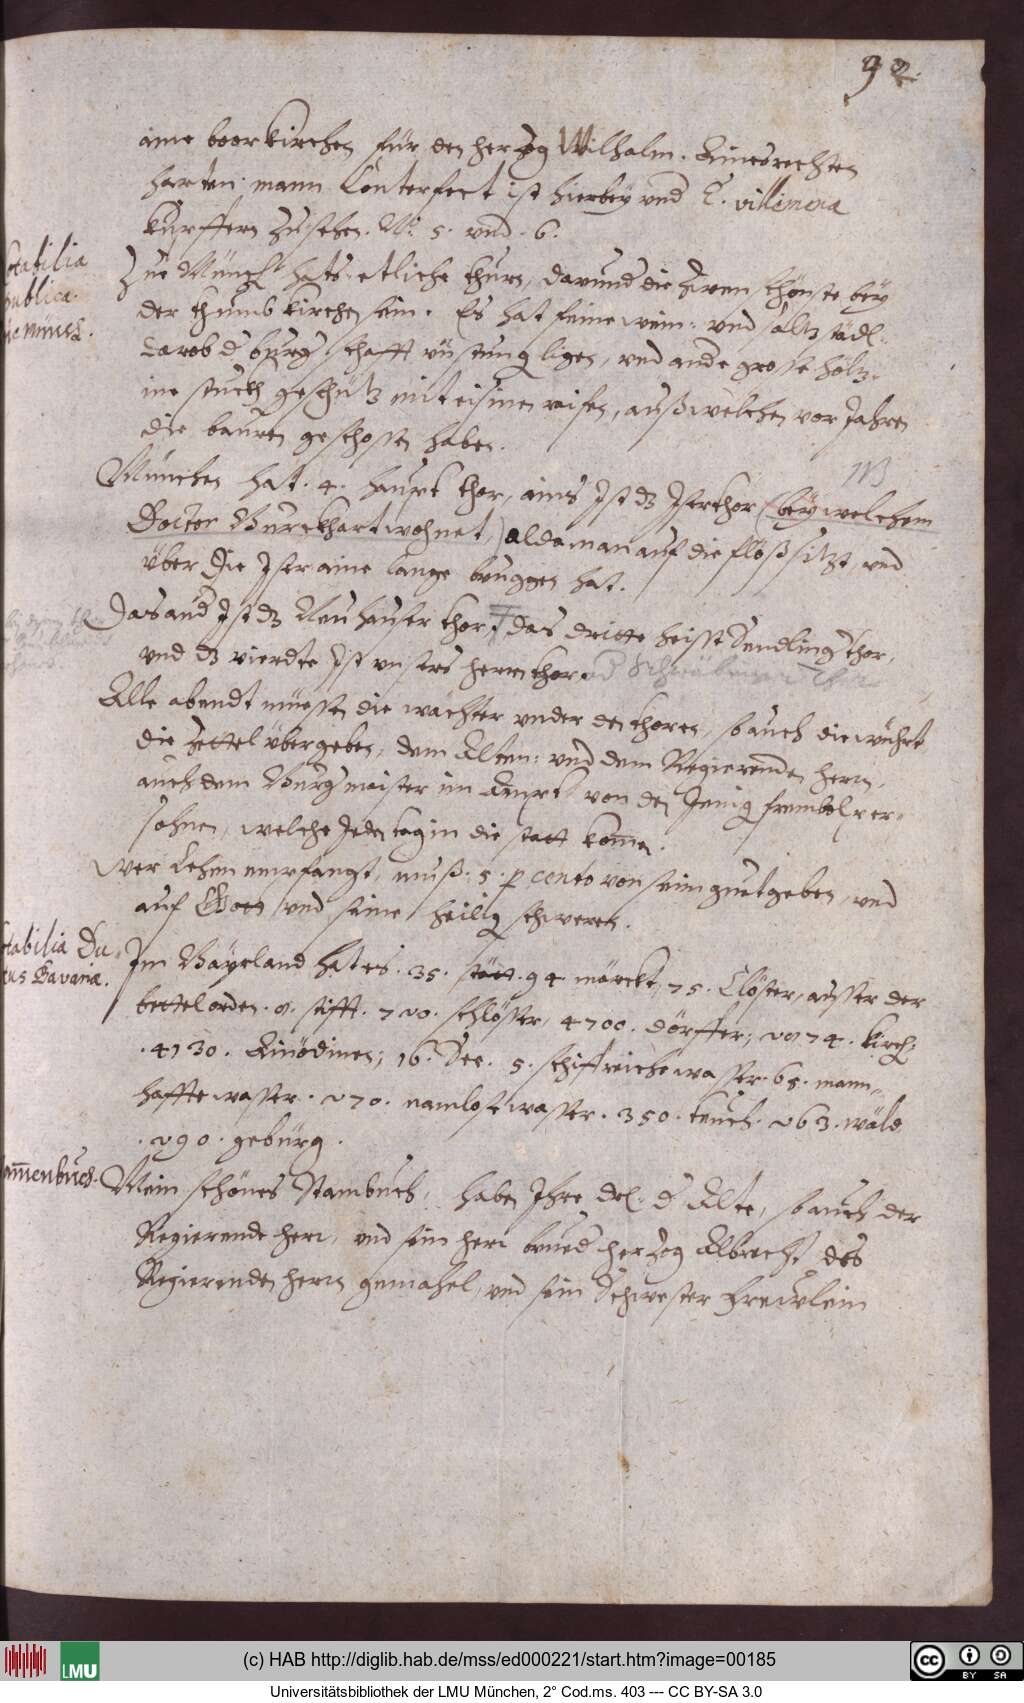 92.
aine boorkirchen für den herzog Wilhalm. Aines rechten
harten mann Conterfect ist hierbey und T. villimera
kupffern zusehen. N. 5. und. 6.
Notabilia
publica
zue münch.
Zue Münch. hats etliche thurn, darund die zwen schönste bey
der thumb kirchen sein. Es hat feine wein: und saltz städl.
darob d burg schafft rüstung ligen, und ande grosse höltz-
ine stuckh geschütz mit eisinen raifen, auß welchen vor Jahren
die bauren geschossen haben.
NB
München hat. 4. haupt thor, ains Ist dz Iserthor (bey welchem
Doctor Burckhart wohnet,) alda man auf die flöß sitzt, und
über die Iser aine lange bruggen hat.
Das and Ist dz Neuhauser thor, das dritte heisst Sendling thor,
und dz vierdte Ist unsers herrn thor.
Alle abendt müessen die wächter under den thoren, so auch die würht
die zettel übergeben, dem Alten: und dem Regierenden herrn,
auch dem Burgmaister im Ampt von den Jenig frembd per-
sohnen, welche Jeden tag in die statt komen.
Wer Lehen empfangt, muß. 5. p cento von seim guet geben, und
auf Gott und seine heilig schweren.
Notabilia Du-
catus Bavariæ.
Im Bayrland hat es. 35. stätt. 94. märckt, 75. Clöster, ausser der
bettelorden. 8. stifft. 720. schlösser, 4700. dörffer, 2874. kirch,
. 4130. Ainödinen, 16. See. 5. schiffreiche wasser. 65. mann-
haffte wasser. 270. namlose wasser. 350. teuch. 263. wäld
. 290. gebürg.
Stammenbuch.
Mein schönes Stambuch, haben Ihre drl. d Alte, so auch der
Regierende herr, und sein herr brued herzog Albrecht des
Regierenden herrn gemahel, und sein Schwester Frewlein
(c) HAB http://diglib.hab.de/mss/ed000221/start.htm?image=00185
LMU
cc BY SA
Universitätsbibliothek der LMU München, 2° Cod.ms. 403 --- CC BY-SA 3.0